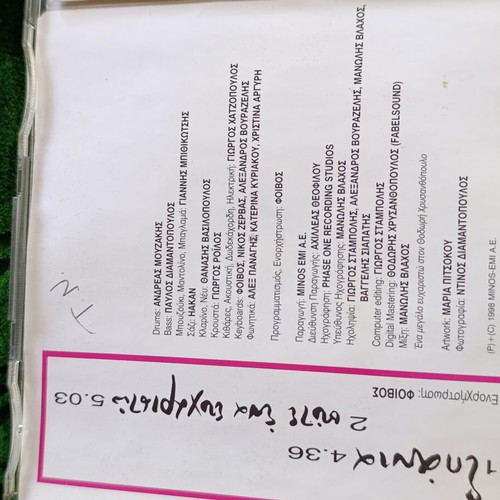 Drums: ΑΝΔΡΕΑΣ ΜΟΥΖΑΚΗΣ
Bass: ΠΑΥΛΟΣ ΔΙΑΜΑΝΤΟΠΟΥΛΟΣ
Μπουζούκι, Μαντολίνο, Μπαγλαμά: ΓΙΑΝΝΗΣ ΜΠΙΘΙΚΩΤΣΗΣ
Σάζι: HAKAN
Κλαρίνο, Νέι: ΘΑΝΑΣΗΣ ΒΑΣΙΛΟΠΟΥΛΟΣ
Κρουστά: ΓΙΩΡΓΟΣ ΡΟΪΛΟΣ
Κιθάρες, Ακουστική, Δωδεκάχορδη, Ηλεκτρική: ΓΙΩΡΓΟΣ ΧΑΤΖΟΠΟΥΛΟΣ
Keyboards: ΦΟΙΒΟΣ, ΝΙΚΟΣ ΖΕΡΒΑΣ, ΑΛΕΞΑΝΔΡΟΣ ΒΟΥΡΑΖΕΛΗΣ
Φωνητικά: ΑΛΕΞ ΠΑΝΑΓΗΣ, ΚΑΤΕΡΙΝΑ ΚΥΡΙΑΚΟΥ, ΧΡΙΣΤΙΝΑ ΑΡΓΥΡΗ
Προγραμματισμός, Ενορχήστρωση: ΦΟΙΒΟΣ
Παραγωγή: MINOS EMI A.E.
Διεύθυνση Παραγωγής: ΑΧΙΛΛΕΑΣ ΘΕΟΦΙΛΟΥ
Ηχογράφηση: PHASE ONE RECORDING STUDIOS
Υπεύθυνος Ηχογράφησης: ΜΑΝΩΛΗΣ ΒΛΑΧΟΣ
Ηχοληψία: ΓΙΩΡΓΟΣ ΣΤΑΜΠΟΛΗΣ, ΑΛΕΞΑΝΔΡΟΣ ΒΟΥΡΑΖΕΛΗΣ, ΜΑΝΩΛΗΣ ΒΛΑΧΟΣ,
ΒΑΓΓΕΛΗΣ ΣΙΑΠΑΤΗΣ
Computer editing: ΓΙΩΡΓΟΣ ΣΤΑΜΠΟΛΗΣ
Digital Mastering: ΘΟΔΩΡΗΣ ΧΡΥΣΑΝΘΟΠΟΥΛΟΣ (FABELSOUND)
Μίξη: ΜΑΝΩΛΗΣ ΒΛΑΧΟΣ
Ένα μεγάλο ευχαριστώ στον Θοδωρή Χρυσανθόπουλο
Artwork: ΜΑΡΙΑ ΠΙΤΣΟΚΟΥ
Φωτογραφία: ΝΤΙΝΟΣ ΔΙΑΜΑΝΤΟΠΟΥΛΟΣ
(P)+(C) 1998 MINOS-EMI A.E.
Ενορχήστρωση: ΦΟΙΒΟΣ
1 Σπάνια 4.36
2 ούτε ένα ευχαριστώ 5.03